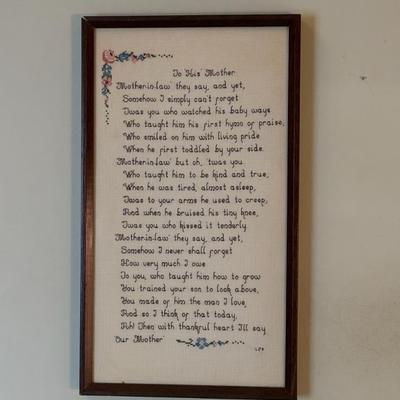 To "His" Mother
"Mother-in-law" they say, and yet,
Somehow I simply can't forget
'Twas you who watched his baby ways
Who taught him his first hymn of praise,
Who smiled on him with living pride
When he first toddled by your side.
"Mother-in-law" but oh, 'twas you
Who taught him to be kind and true,
When he was tired, almost asleep,
'Twas to your arms he used to creep,
And when he bruised his tiny knee,
'Twas you who kissed it tenderly.
"Mother-in-law" they say, and yet,
Somehow I never shall forget
How very much I owe
To you, who taught him how to grow
You trained your son to look above,
You made of him the man I love,
And so I think of that today,
Ah! Then with thankful heart I'll say
"Our Mother"